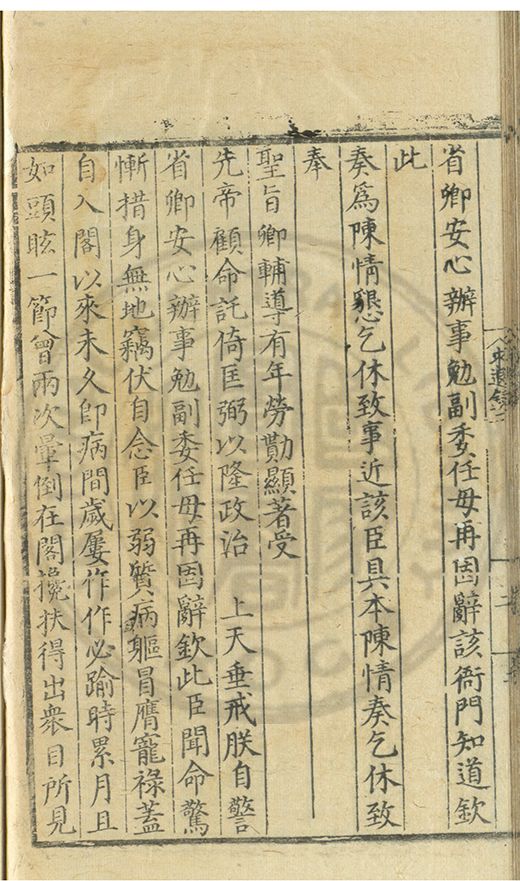 省卿安心辦事勉副委任毋再固辭該衙門知道欽
此
奏爲陳情懇乞休致事近該臣具本陳情奏乞休致
奉
聖旨卿輔導有年勞勩顯著受
先帝顧命託倚匡弼以隆政治　上天垂戒朕自警
省卿安心辦事勉副委任毋再固辭欽此臣聞命驚
慚措身無地竊伏自念臣以弱質病軀冒膺寵祿蓋
自入閣以來未久卽病間歲屢作作必踰時累月且
如頭眩一節曾兩次暈倒在閣攙扶得出衆目所見